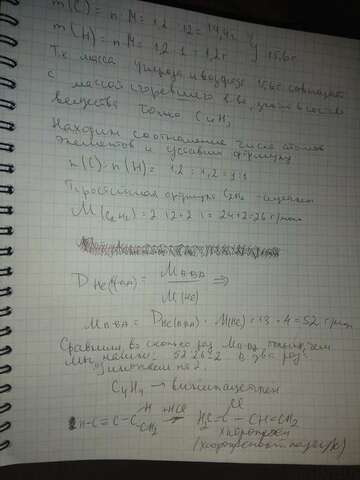 m(C) = n·M = 1,2·12 = 14,4г
m(H) = n·M = 1,2·1 = 1,2г
15,6г
Т.к масса углерода и водорода 15,6г совпадает
с массой сгоревшего в-ва, значит в составе
вещества только C и H,
Находим соотношение числа атомов
элементов и уставим формулу
n(C):n(H) = 1,2:1,2 = 1:1
Простейшая формула C2H2 - ацетилен
M(C2H2) = 2·12+2·1 = 24+2=26 г/моль
D He(ПАА) = M ПВА / M(He) =>
M ПВА = D He(ПВА) · M(He) = 13·4 = 52 г/моль
Сравним, во сколько раз больше, чем
мы нашли: 52:26=2 в два раза
C4H4 → винилацетилен
H-C≡C-C H CH2 +HCl H2C=C-CH=CH2
Cl
хлоропрен